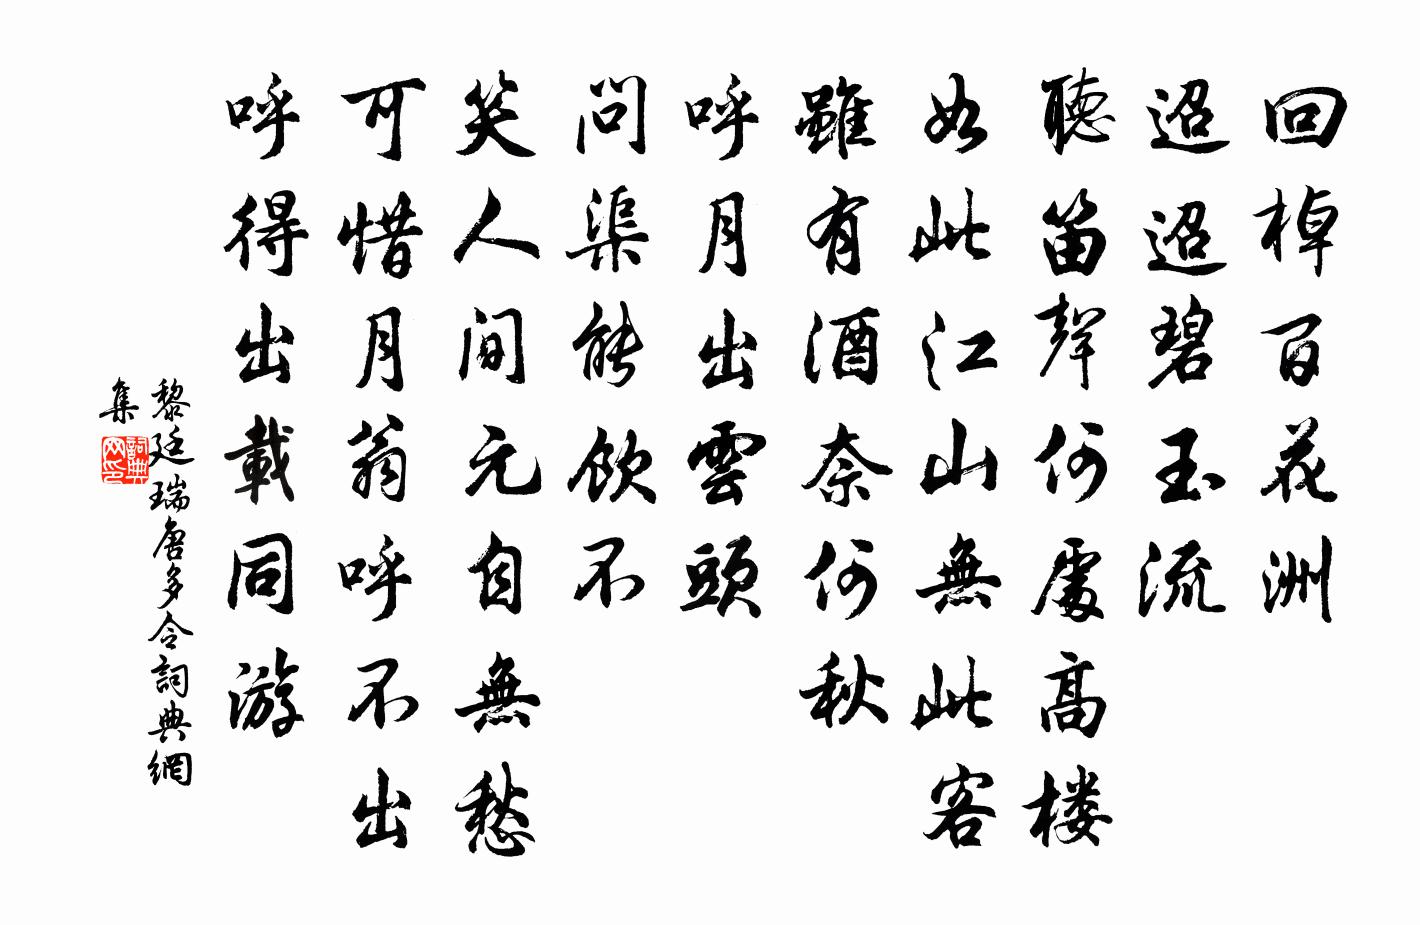 回棹百花洲
迢迢碧玉流
聽笛聲何處高楼
如此江山無此客
雖有酒奈何秋
呼月出雲頭
問渠能飲不
笑人間元自無愁
可惜月翁呼不出
呼得出載同游
黎廷瑞唐多令詞典網
集
詞典網印